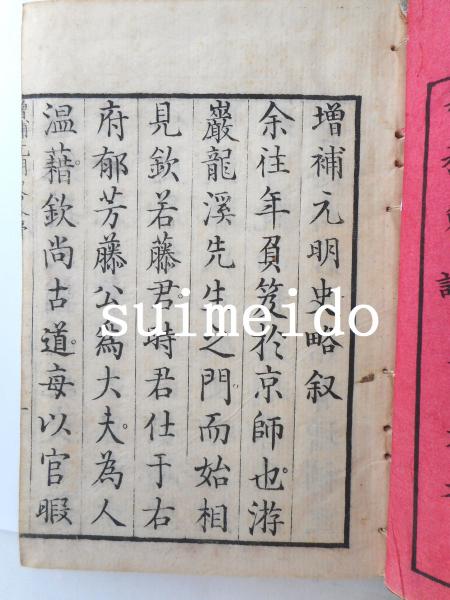 增補元明史略叙
余往年負笈於京師也。游
巖龍溪先生之門而始相
見欽若藤君。時君仕于右
府郁芳藤公為大夫。為人
温藉。欽尚古道。每以官暇
suimeido